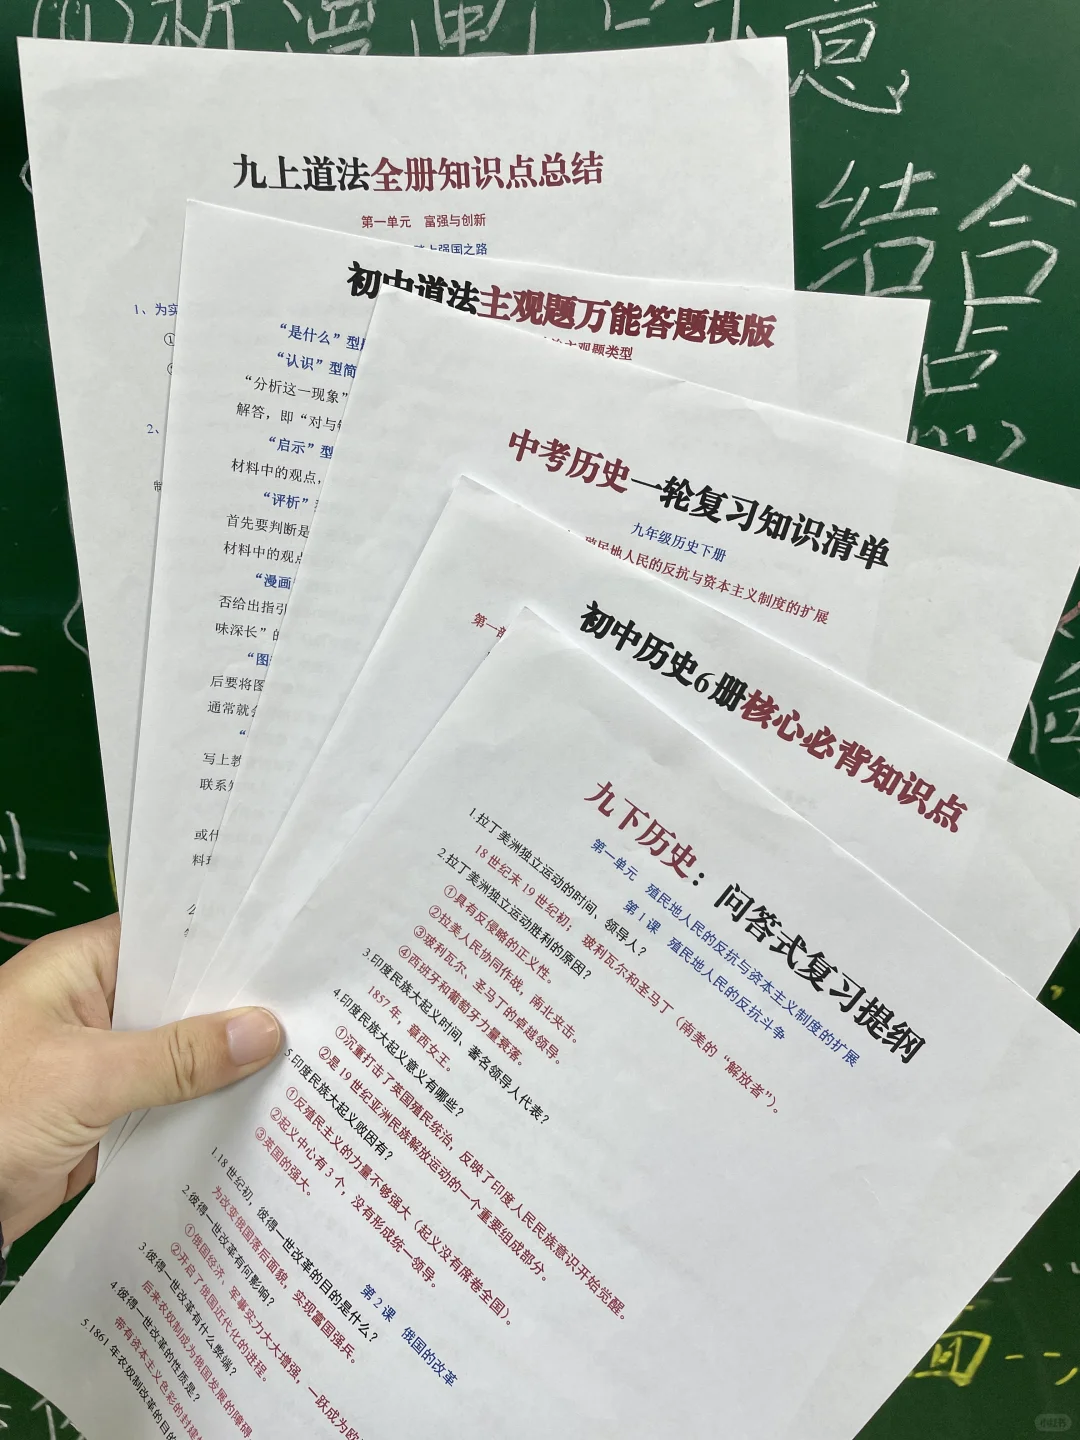 意
结合
九上道法全册知识点总结
第一单元 富强与创新
踏上强国之路
1、为实
①
2、
初中道法主观题万能答题模版
主观题类型
“是什么”型
“认识”型简
“分析这一现象”
解答，即“对与
“启示”型
材料中的观点，
“评析”
首先要判断是
材料中的观点
“漫画
否给出指引
味深长”的
“图
后要将图
通常就会
写上教
联系知
或什
中考历史一轮复习知识清单
九年级历史下册
殖民地人民的反抗与资本主义制度的扩展
初中历史6册核心必背知识点
第一部
九下历史：问答式复习提纲
第一单元 殖民地人民的反抗与资本主义制度的扩展
第1课 殖民地人民的反抗斗争
1.拉丁美洲独立运动的时间、领导人？
18世纪末19世纪初； 玻利瓦尔和圣马丁（南美的“解放者”）。
2.拉丁美洲独立运动胜利的原因？
①具有反侵略的正义性。
②拉美人民协同作战，南北夹击。
③玻利瓦尔、圣马丁的卓越领导。
④西班牙和葡萄牙力量衰落。
3.印度民族大起义时间、著名领导人代表？
1857年，章西女王。
4.印度民族大起义意义有哪些？
①沉重打击了英国殖民统治，反映了印度人民民族意识开始觉醒。
②是19世纪亚洲民族解放运动的一个重要组成部分。
5.印度民族大起义败因有？
①反殖民主义的力量不够强大（起义没有席卷全国）。
②起义中心有3个，没有形成统一领导。
③英国的强大。
第2课 俄国的改革
1.18世纪初，彼得一世改革的目的是什么？
为改变俄国落后面貌，实现富国强兵。
2.彼得一世改革有何影响？
①俄国经济、军事实力大大增强，一跃成为欧
②开启了俄国近代化的进程。
3.彼得一世改革有什么弊端？
后来农奴制成为俄国发展的障碍
4.彼得一世改革的性质是？
带有资本主义色彩的封建
5.1861年农奴制改革的目的